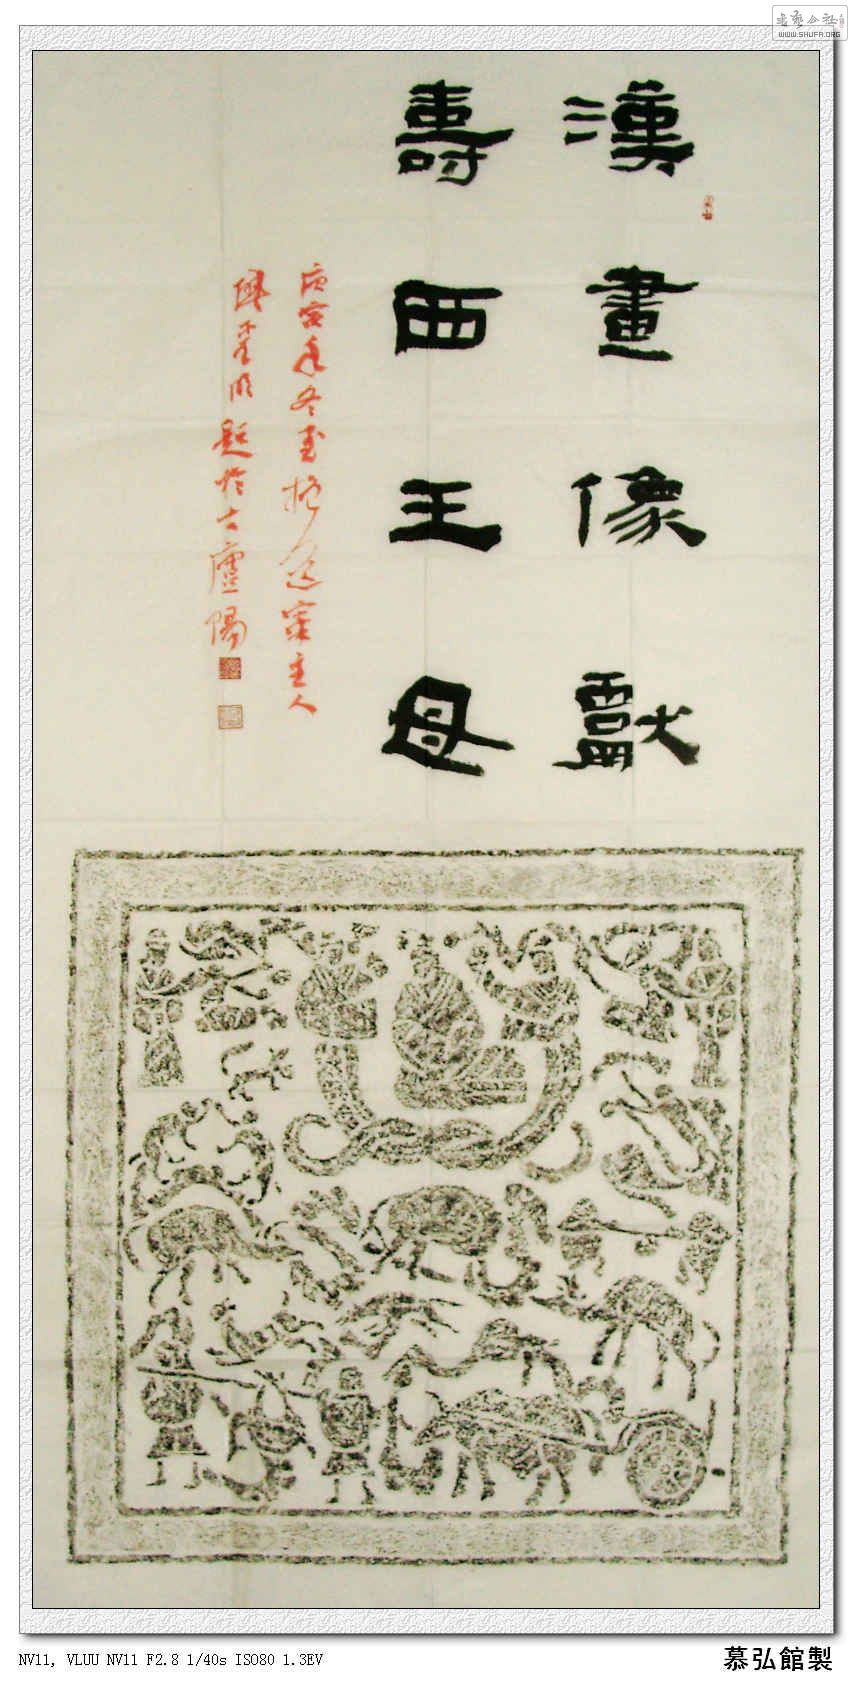 书艺公社
WWW.SHUFA.ORG
漢畫像獻
壽西王母
庚寅年冬至抱 寀主人
題於古廬陽
NV11, VLUU NV11 F2.8 1/40s ISO80 1.3EV
慕弘館製